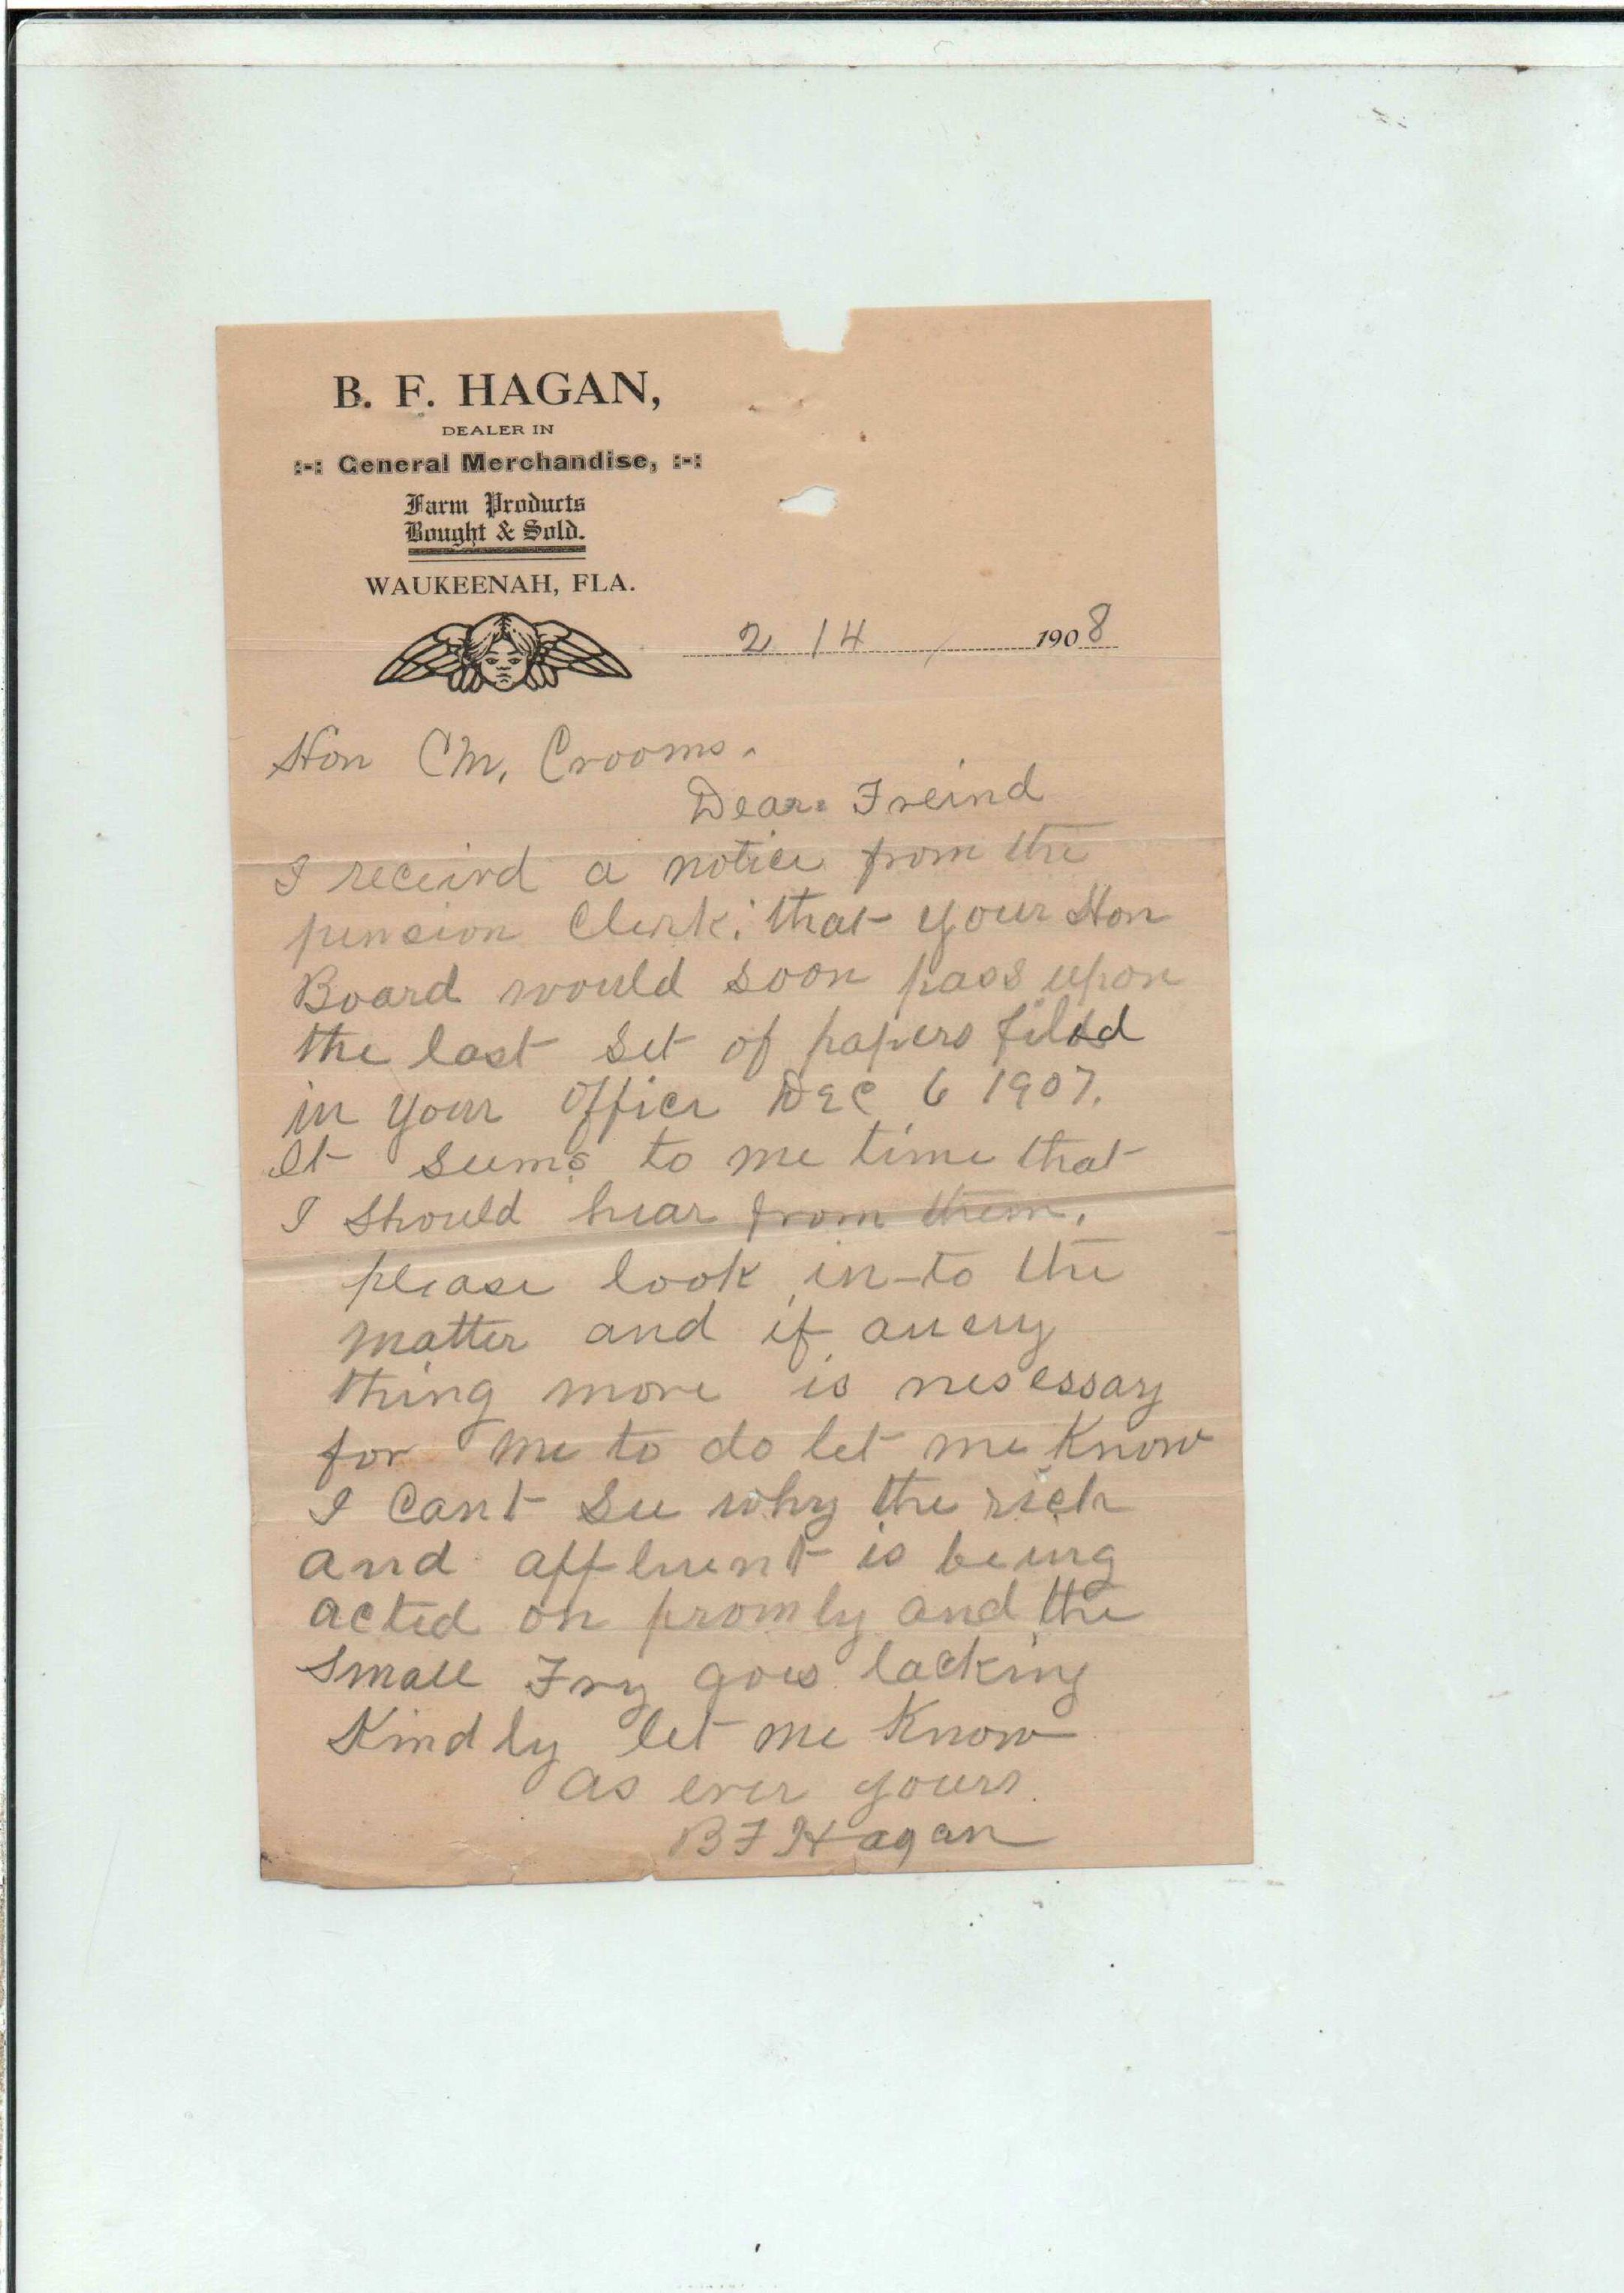 B. F. HAGAN,
DEALER IN
:-: General Merchandise, :-:
Farm Products
Bought & Sold.
WAUKEENAH, FLA.
2 14 1908
Hon CM. Crooms.
Dear. Freind
I receivd a notice from the
pension Clerk. that your Hon
Board would soon pass upon
the last set of papers filed
in your office Dec 6 1907.
It seems to me time that
I should hear from them.
please look in-to the
matter and if
thing more is nesessary
for me to do let me Know
I Cant See why the rich
and affluent is being
acted on promly and the
Small Fry goes lacking
Kindly let me Know
as ever yours.
BF Hagan